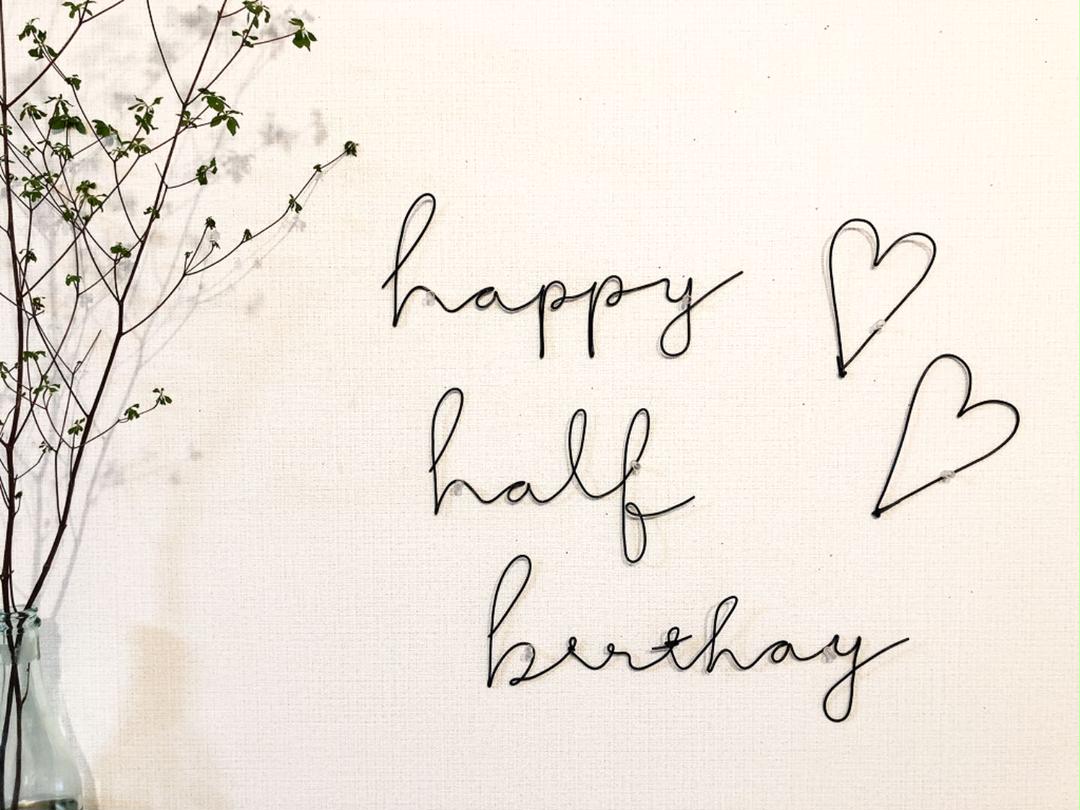 happy
half
birthay